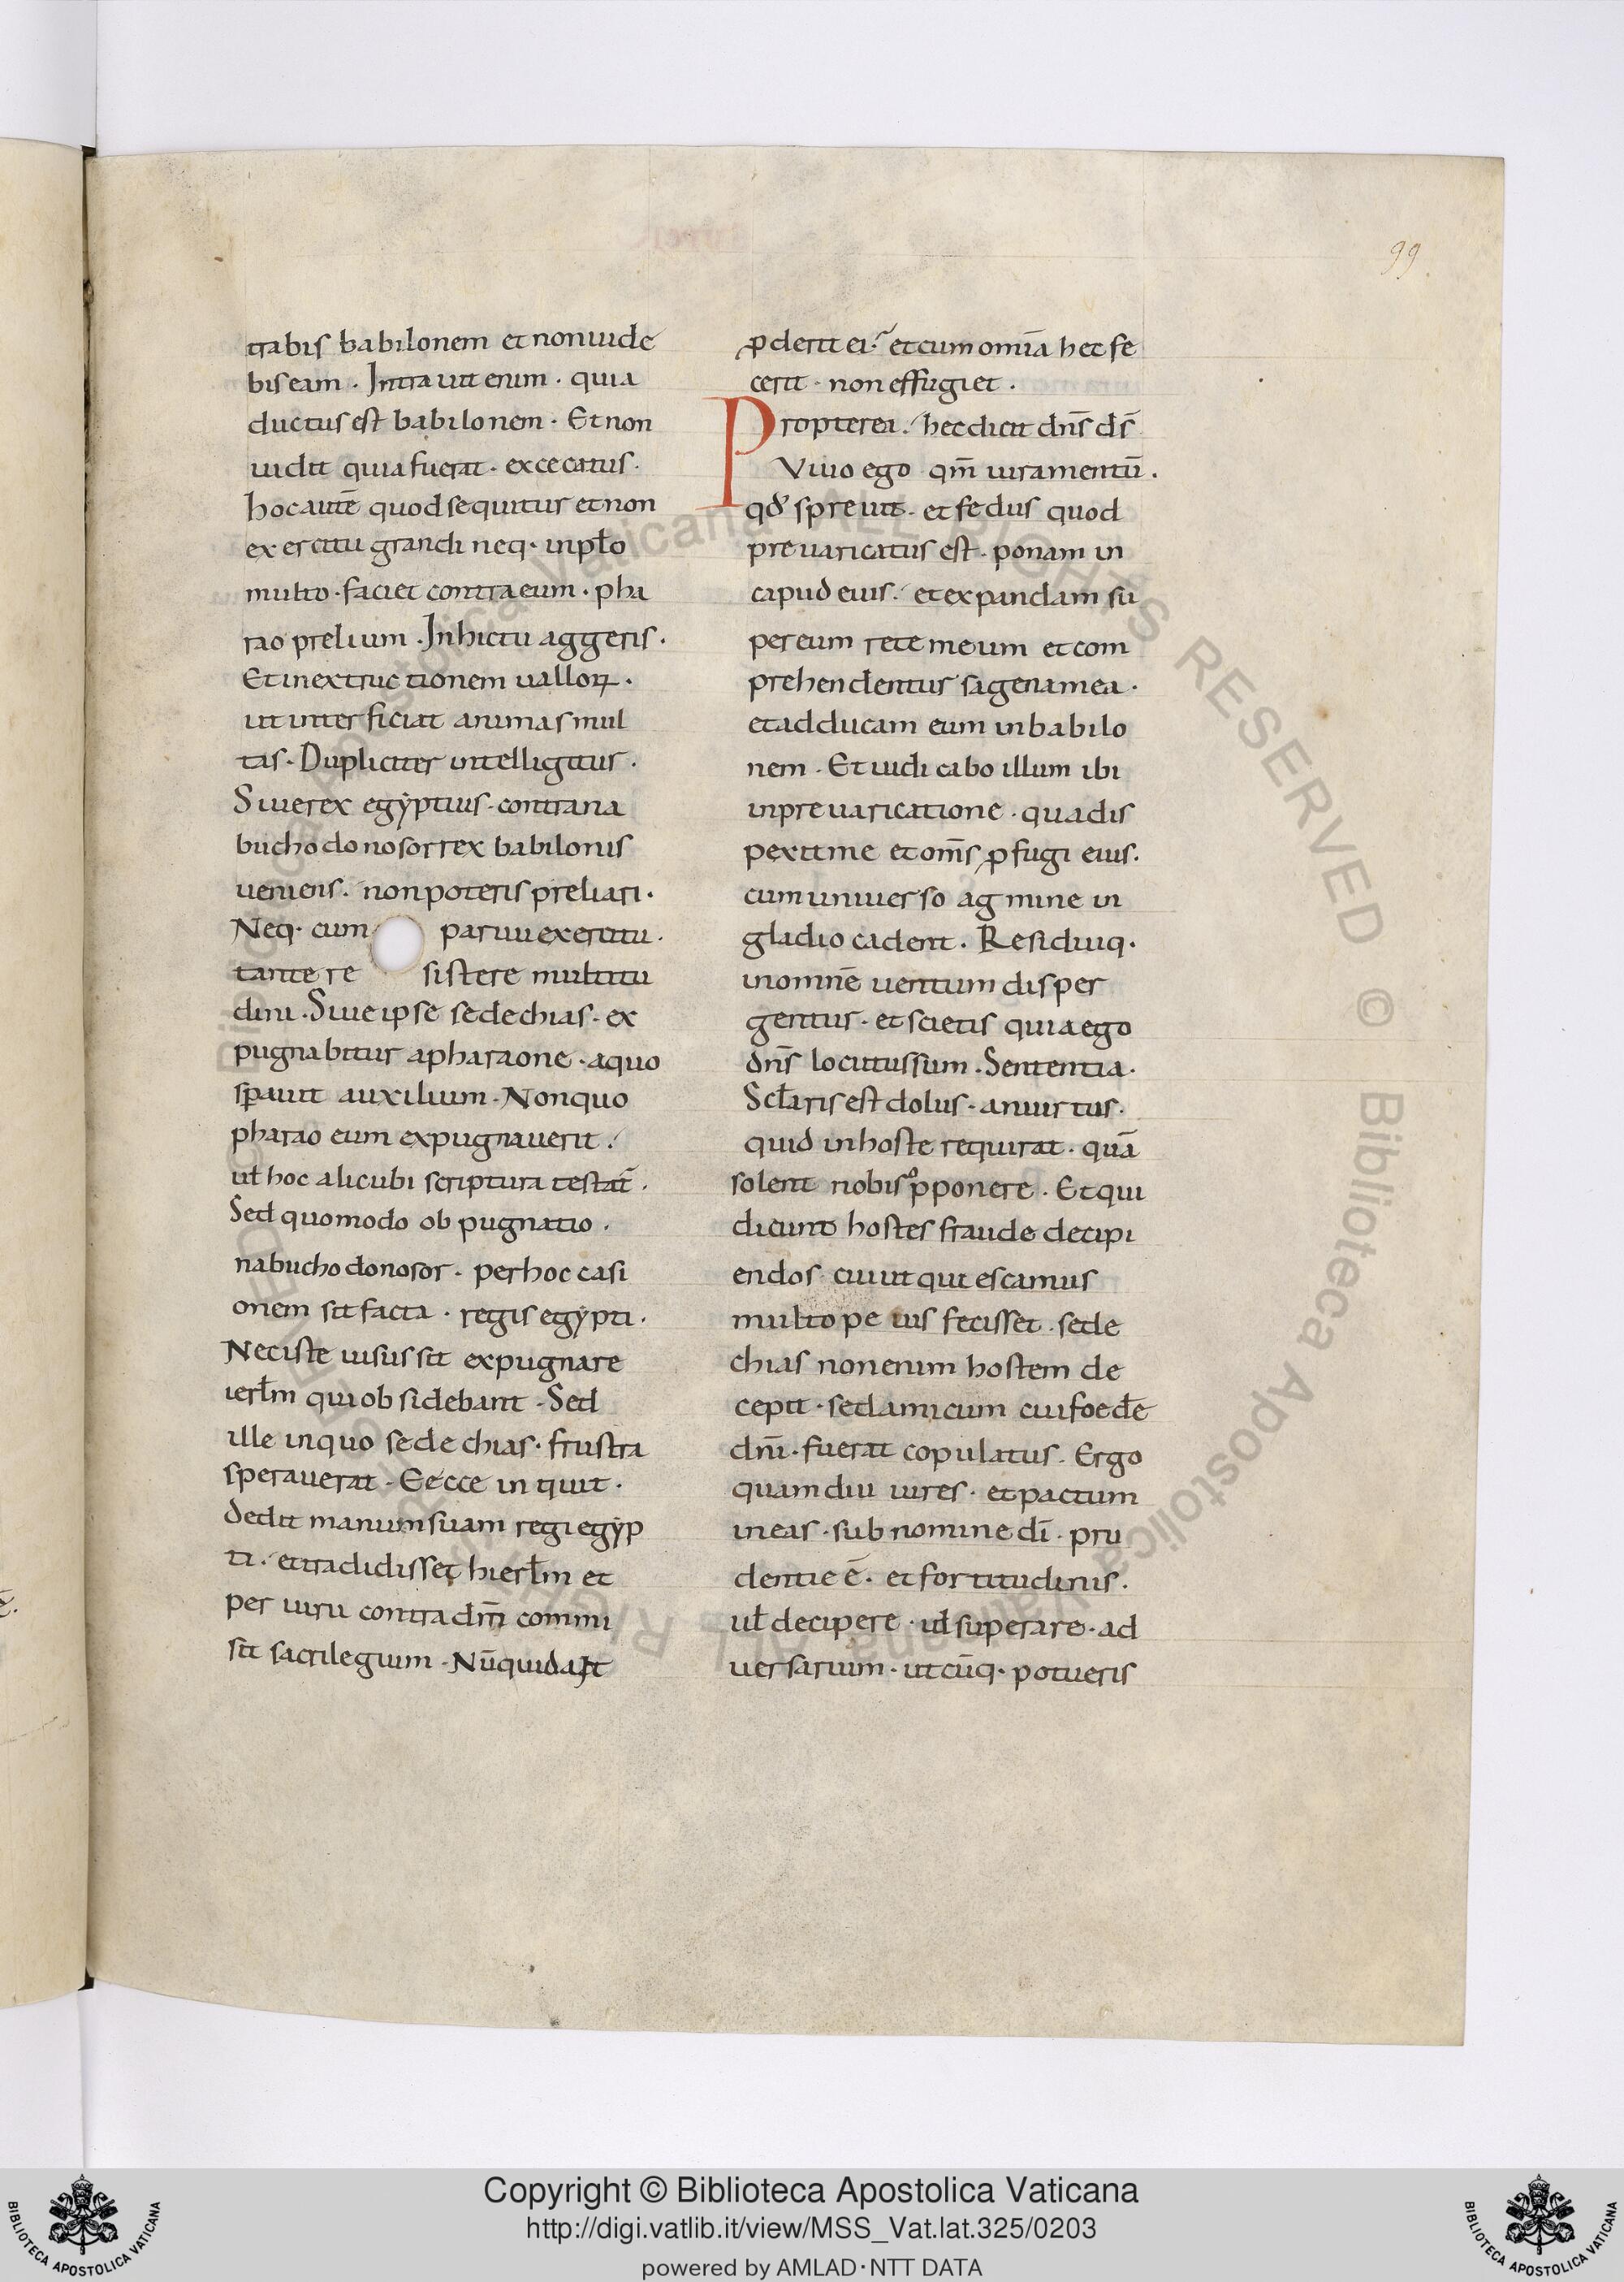 99
trabis babilonem et non uide
bis eam · Intrauit enim · quia
ductus est babilonem · Et non
uidit quia fuerat · excecatus ·
hoc autē quod sequitur et non
exercitu grandi neq· in pło
multo · faciet contra eum · pha
rao prelium · In hictu aggeris ·
Et in extructionemualloꝝ ·
ut interficiat animas mul
tas · Dupliciter intelligitur ·
Siue rex egẏptius · contra na
buchodonosor rex babilonis
ueniens · non poteris preliari ·
Neq· cum paruu exercitu ·
tante re sistere multitu
dini · Siue ipse sedechias · ex
pugnabitur a pharaone · a quo
sꝑauit auxilium · Non quo
pharao eum expugnauerit ·
uł hoc alicubi scriptura testat̄ ·
Sed quomodo ob pugnatio ·
nabuchodonosor · per hoc casi
onem sit facta · regis egẏpti ·
Nec iste uisus sit expugnare
ierłm qui obsidebant · Sed
ille in quo sedechias · frustra
sperauerat · Eecce inquit ·
dedit manum suam regi egẏp
ti · et tradidisset hierłm et
per uiru contra dm̄ commi
sit sacrilegium · Nūquid a it
ꝓderit ei · et cum omīa hec fe
cerit · non effugiet ·
Propterea · hec dicit dn̄s ds̄
Viuo ego qm̄ iuramentū ·
qđ spreuit · et fedus quod
preuaricatus est · ponam in
capud eius · et expandam su
per eum rete meum et com
prehendentur sagena mea ·
et adducam eum in babilo
nem · Et iudicabo illum ibi
in preuaricatione · qua dis
pexit me et om̄s ꝓfugi eius ·
cum uniuerso agmine in
gladio cadent · Residuiq·
in omnē uentum disper
gentur · et scietis quia ego
dn̄s locutus sum · Sententia ·
Scłaris est dolus · an uirtus ·
quid in hoste requirat · quā
solent nobis ꝓponere · Et qui
dicunt hostes fraude decipi
endos · cui ut quiescamus
multo pe ius fecisset · sede
chias non enim hostem de
cepit · sed amicum cui foede
dn̄i · fuerat copulatus · Ergo
quamdiu iures · et pactum
ineas · sub nomine dī · pru
dentie ē · et fortitudinis ·
uł decipere · uł superare · ad
uersarium · ut cūq· potueris
Copyright © Biblioteca Apostolica Vaticana
http://digi.vatlib.it/view/MSS_Vat.lat.325/0203
powered by AMLAD·NTT DATA
BIBLIOTECA APOSTOLICA VATICANA
BIBLIOTECA APOSTOLICA VATICANA